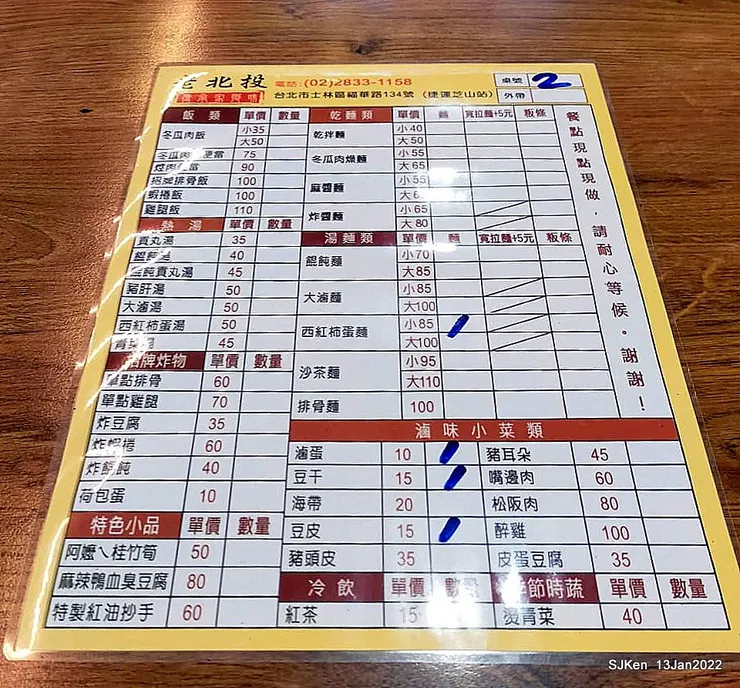 老北投 電話:(02)2833-1158 桌號 2
台北市士林區福華路134號 (捷運芝山站) 外帶
飯類 單價 數量
冬瓜肉飯 小35
大50
75
90
招牌排骨飯 100
蝦捲飯 100
雞腿飯 110
熱湯 單價 數量
貢丸湯 35
餛飩湯 40
餛飩貢丸湯 45
豬肝湯 50
大滷湯 50
西紅柿蛋湯 50
青菜湯 45
招牌炸物 單價 數量
單點排骨 60
單點雞腿 70
炸豆腐 35
炸蝦捲 60
炸餛飩 40
荷包蛋 10
特色小品 單價 數量
阿嬤ㄟ桂竹筍 50
麻辣鴨血臭豆腐 80
特製紅油抄手 60
乾麵類 單價 麵 寬拉麵+5元 板條
乾拌麵 小40
大50
冬瓜肉燥麵 小55
大65
麻醬麵 小55
炸醬麵 小65
大80
湯麵類 單價 麵 寬拉麵+5元 板條
餛飩麵 小70
大85
大滷麵 小85
大100
西紅柿蛋麵 小85
大100
沙茶麵 小95
大110
排骨麵 100
滷味小菜類
滷蛋 10 豬耳朵 45
豆干 15 嘴邊肉 60
海帶 20 松阪肉 80
豆皮 15 醉雞 100
豬頭皮 35 皮蛋豆腐 35
冷飲 單價 數量 季節時蔬 單價 數量
紅茶 15 燙青菜 40
餐點現點現做.請耐心等候。謝謝!
SJKen 13Jan2022